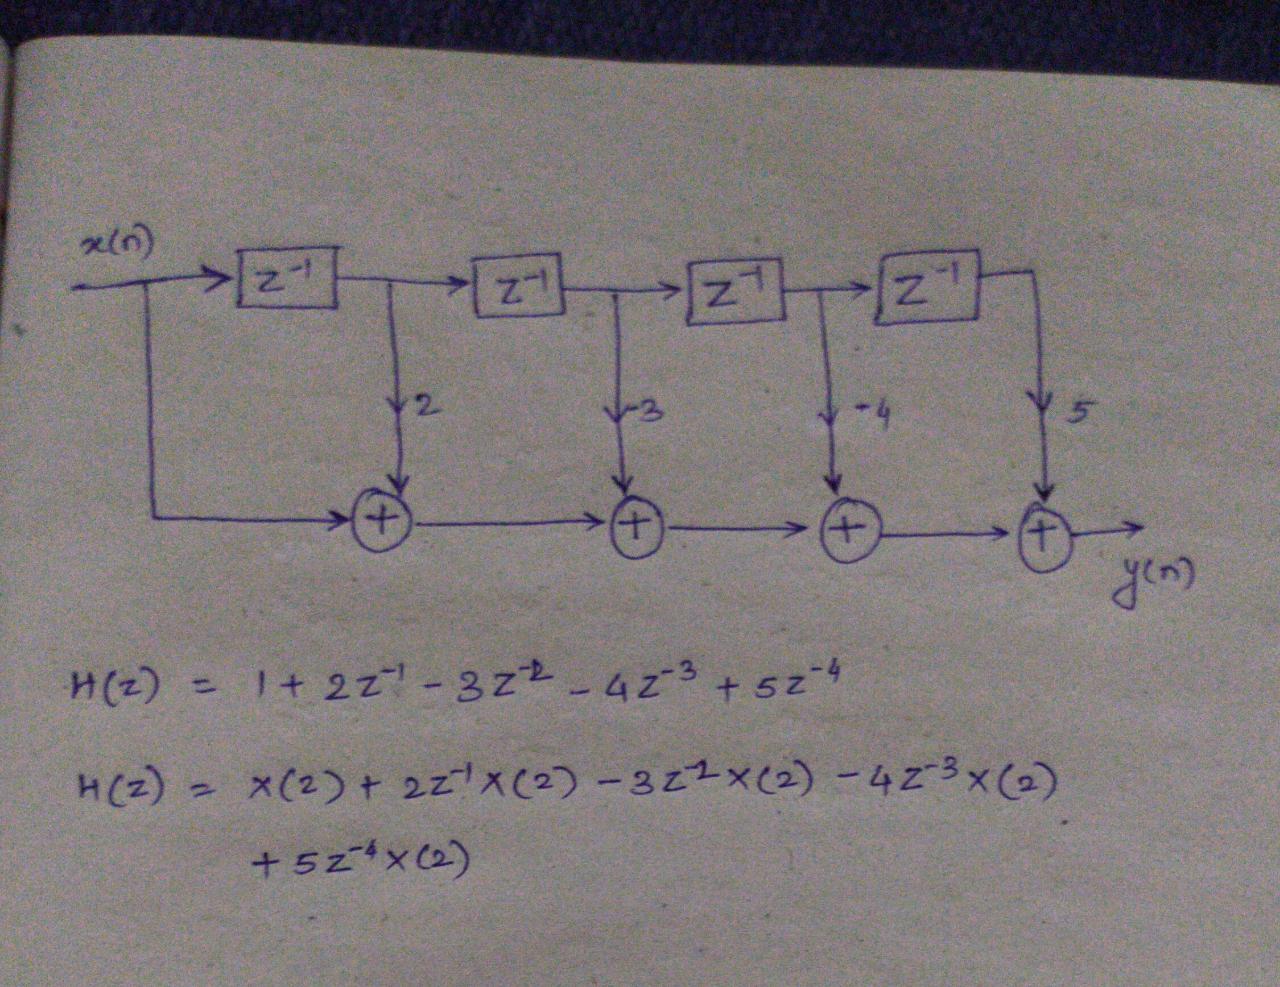 x(n)
z⁻¹ z⁻¹ z⁻¹ z⁻¹
2 -3 -4 5
+ + + +
y(n)
H(z) = 1 + 2z⁻¹ - 3z⁻² - 4z⁻³ + 5z⁻⁴
H(z) = x(2) + 2z⁻¹x(2) - 3z⁻²x(2) - 4z⁻³x(2)
+ 5z⁻⁴x(2)